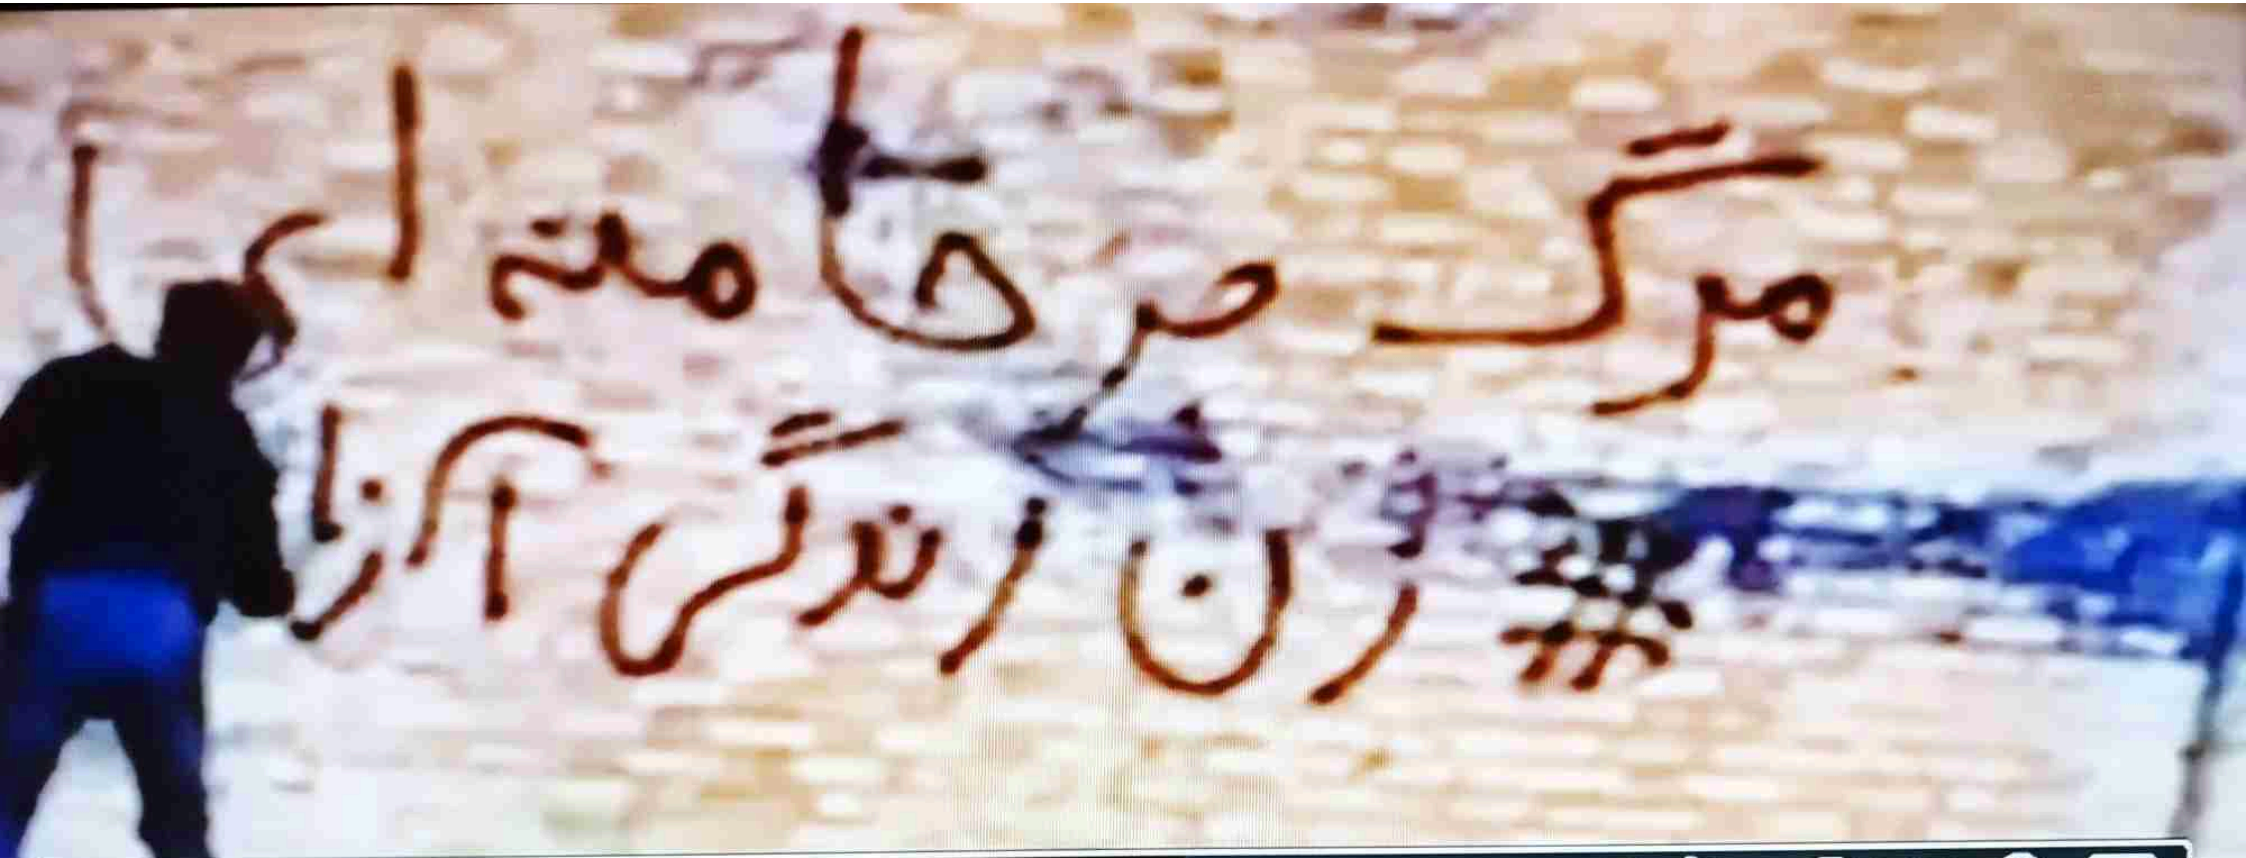 مرگ بر خامنه ای
#زن زندگی آزا